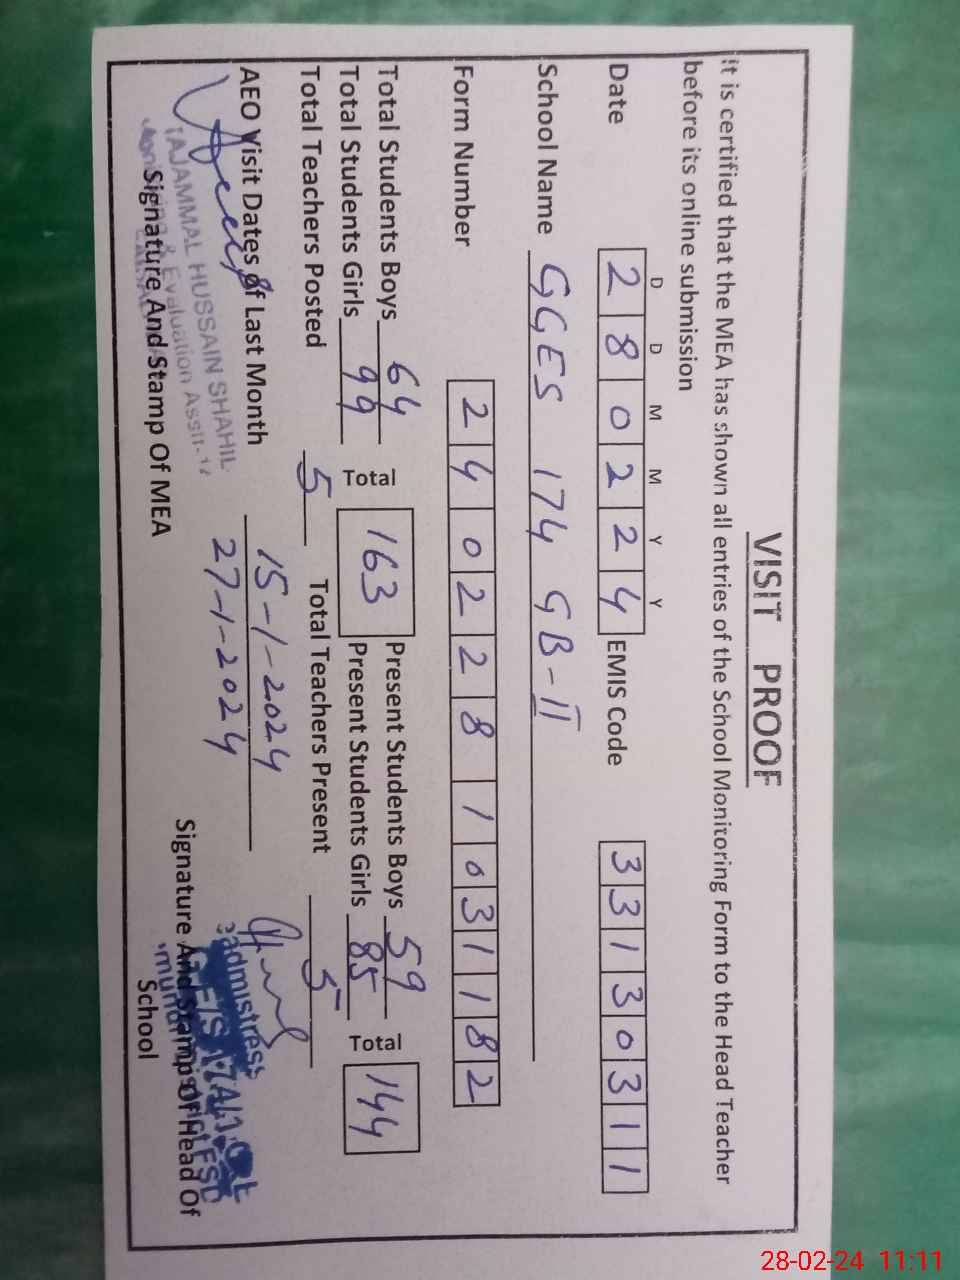 VISIT PROOF
it is certified that the MEA has shown all entries of the School Monitoring Form to the Head Teacher
before its online submission
D D M M Y Y
Date 2 8 0 2 2 4 EMIS Code 3 3 1 3 0 3 1 1
School Name GGES 174 GB-II
Form Number 2 4 0 2 2 8 1 0 3 1 1 8 2
Total Students Boys 64 Total 163 Present Students Boys 59 Total 144
Total Students Girls 99 Present Students Girls 85
Total Teachers Posted 5 Total Teachers Present 5
AEO Visit Dates of Last Month 15-1-2024
27-1-2024
TAJAMMAL HUSSAIN SHAHID
Monitoring & Evaluation Assit-
Signature And Stamp Of MEA
Signature And Stamp Of Head Of
School
28-02-24 11:11